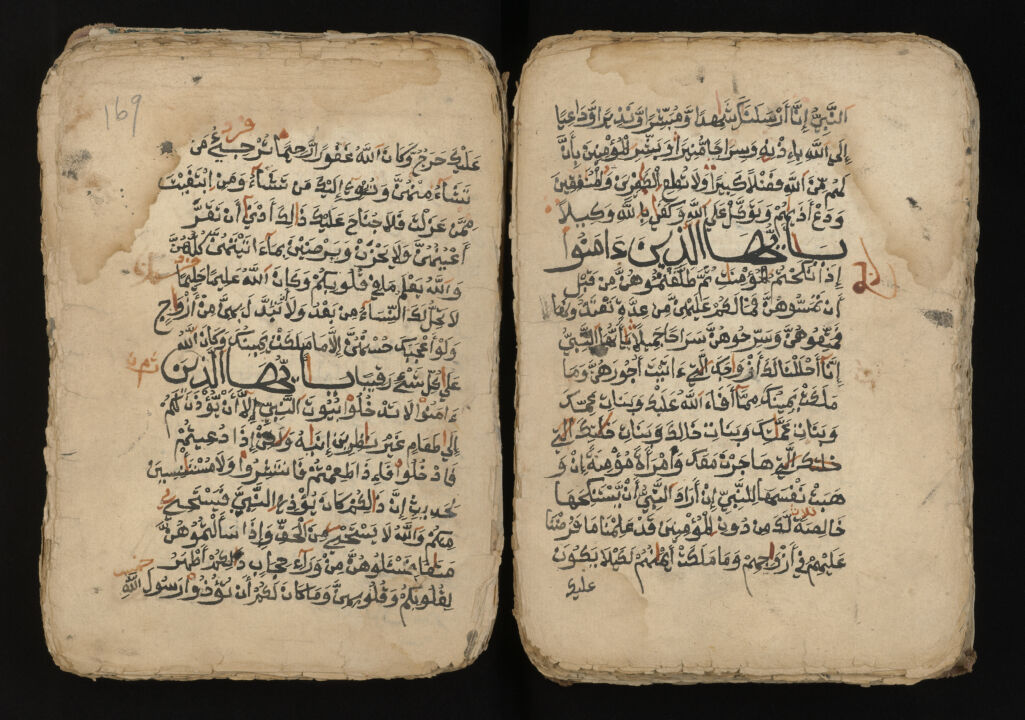 النبي إنا أرسلنك شهدا ومبشرا ونذيرا وداعيا
إلى الله بإذنه وسراجا منيرا وبشر المؤمنين بأن
لهم من الله فضلا كبيرا ولا تطع الكفرين والمنفقين
ودع أذيهم وتوكل على الله وكفى بالله وكيلا
يا أيها الذين ءامنوا
إذا نكحتم المؤمنت ثم طلقتموهن من قبل
أن تمسوهن فما لكم عليهن من عدة تعتدونها
فمتعوهن وسرحوهن سراحا جميلا يأيها النبي
إنا أحللنا لك أزوجك التي ءاتيت أجورهن وما
ملكت يمينك مما أفاء الله عليك وبنات عمك
وبنات عمتك وبنات خالك وبنات خلتك التي
هاجرن معك وامرأة مؤمنة إن و
هبت نفسها للنبي إن أراد النبي أن يستنكحها
خالصة لك من دون المؤمنين قد علمنا ما فرضنا
عليهم في أزوجهم وما ملكت أيمنهم لكيلا يكون
عليك
169
عليك حرج وكان الله غفورا رحيما ترجئ من
تشاء منهن وتئوي إليك من تشاء ومن ابتغيت
ممن عزلت فلا جناح عليك ذلك أدنى أن تقر
أعينهن ولا يحزن ويرضين بما ءاتيتهن كلهن
والله يعلم ما في قلوبكم وكان الله عليما حليما
لا يحل لك النساء من بعد ولا تبدل بهن من أزواج
ولو أعجبك حسنهن إلا ما ملكت يمينك وكان الله
على كل شيء رقيبا يا أيها الذين
ءامنوا لا تدخلوا بيوت النبي إلا أن يؤذن لكم
إلى طعام غير نظرين إنيه ولكن إذا دعيتم
فادخلوا فإذا طعمتم فانتشروا ولا مستئنسين
لحديث إن ذالكم كان يؤذي النبي فيستحي
منكم والله لا يستحي من الحق وإذا سألتموهن
متعا فسئلوهن من وراء حجاب ذالكم أطهر
لقلوبكم وقلوبهن وما كان لكم أن تؤذوا رسول الله